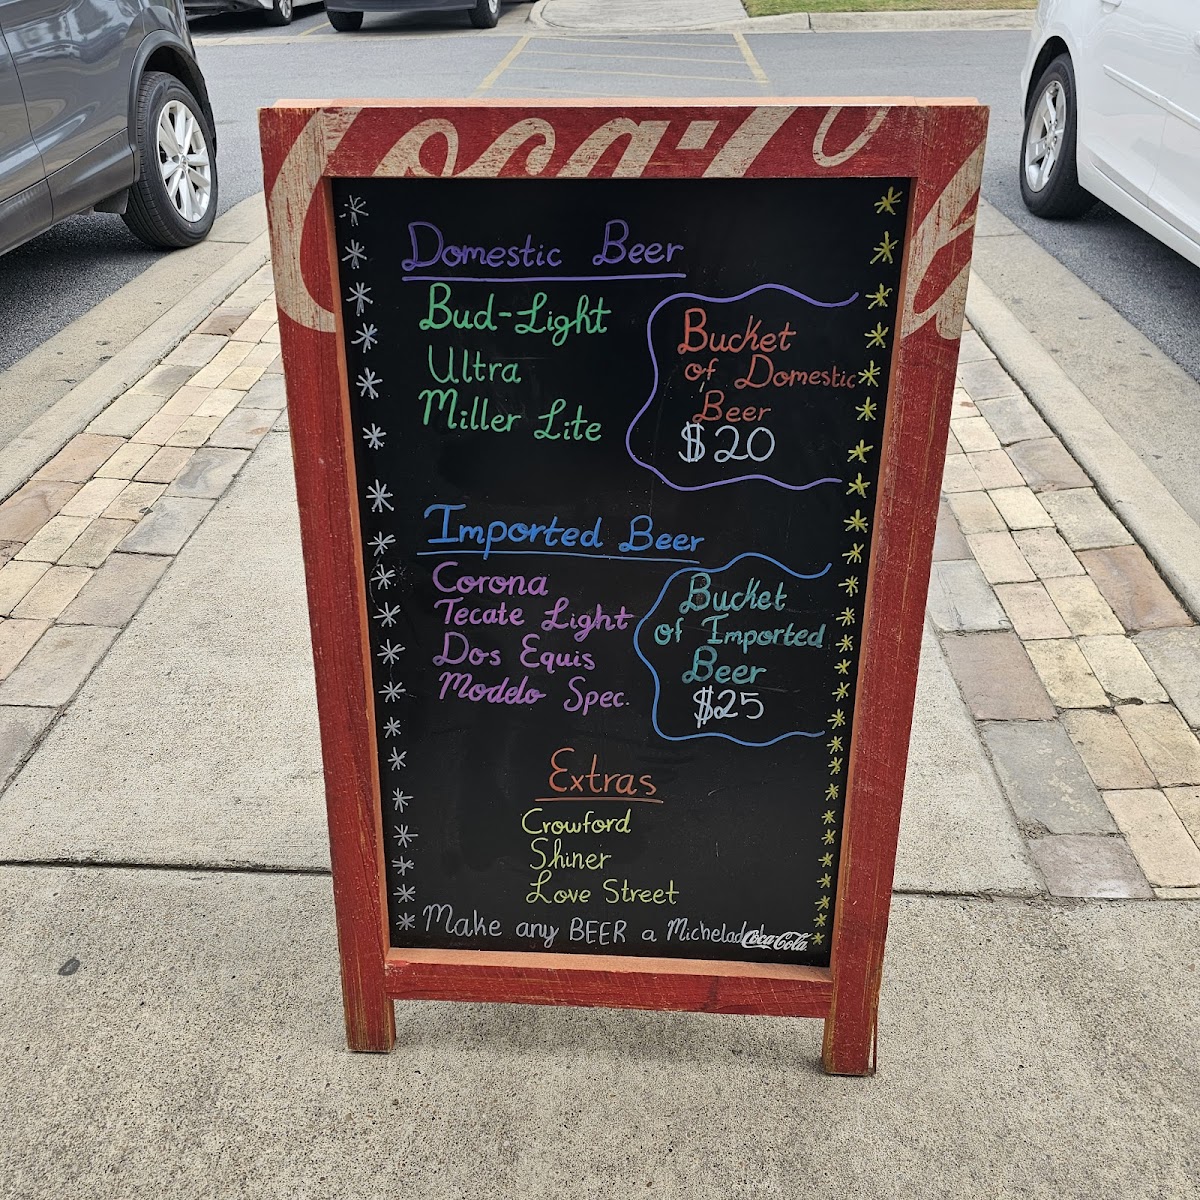 Coca-Cola
Domestic Beer
Bud-Light
Ultra
Miller Lite
Bucket
of Domestic
Beer
$20
Imported Beer
Corona
Tecate Light
Dos Equis
Modelo Spec.
Bucket
of Imported
Beer
$25
Extras
Crowford
Shiner
Love Street
Make any BEER a Michelada!
Coca-Cola